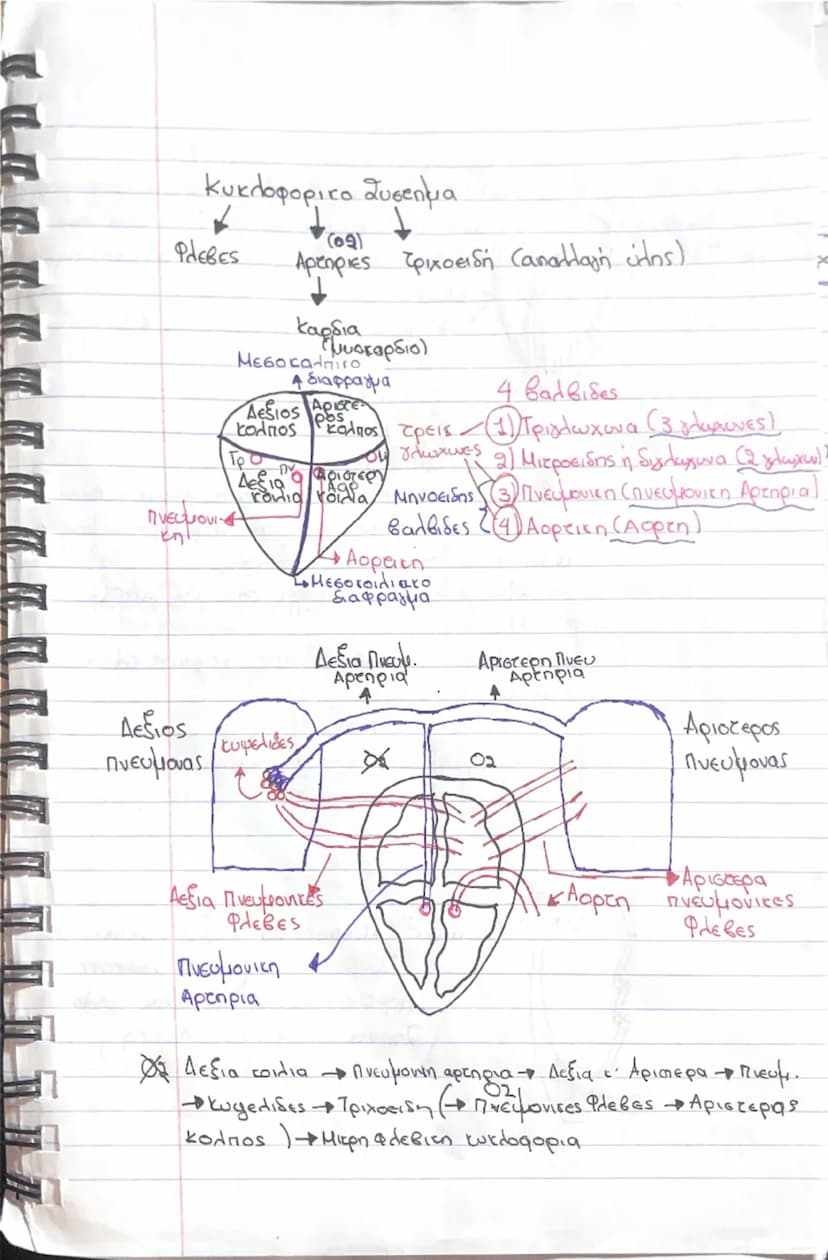 Κυκλοφορικο Συστημα
Φλεβες
(Ο2)
Αρτηριες
Τριχοειδή (ανταλλαγή ύλης)
Καρδια
(Μυοκαρδιο)
Μεσοκολπικο
διαφραγμα
Δεξιος
κολπος
Αριστε-
ρος
κολπος
Τρ
Πν
Δεξια
κοιλια
Αριστερη
Αορ
κοιλια
Πνευμονι-
κη
Αορτικη
Μεσοκοιλιακο
διαφραγμα
4 βαλβιδες
τρεις
γλωχινες
1) Τριγλωχινα (3 γλωχινες)
2) Μιτροειδης ή διγλωχινα (2 γλωχιν)
Μηνοειδης
βαλβιδες
3) Πνευμονικη (πνευμονικη Αρτηρια)
4) Αορτικη (Αορτη)
Δεξια Πνευμ.
Αρτηρια
Αριστερη Πνευ
Αρτηρια
Δεξιος
Πνευμονας
κυψελιδες
Ο2
Ο2
Αριστερος
Πνευμονας
Δεξια Πνευμονικες
Φλεβες
Αορτη
Αριστερα
πνευμονικες
Φλεβες
Πνευμονικη
Αρτηρια
Ο2 Δεξια κοιλια → Πνευμονικη αρτηρια → Δεξια κ' Αριστερα → Πνευμ.
Ο2
→ Κυψελιδες → Τριχοειδη (→ Πνευμονικες Φλεβες → Αριστερος
κολπος ) → Μικρη Φλεβικη κυκλοφορια